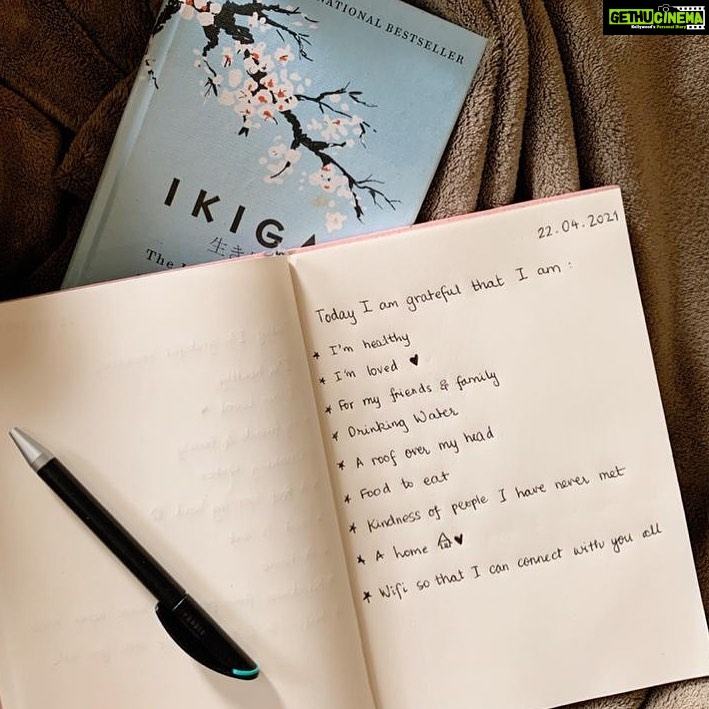 GETHUCINEMA
Kollywood's Personal Diary
NATIONAL BESTSELLER
IKIGA
生き
The
22.04.2021
Today I am grateful that I am :
* I'm healthy
* I'm loved ♥
* For my friends & family
* Drinking Water
* A roof over my head
* Food to eat
* Kindness of people I have never met
* A home ♥
* Wifi so that I can connect with you all